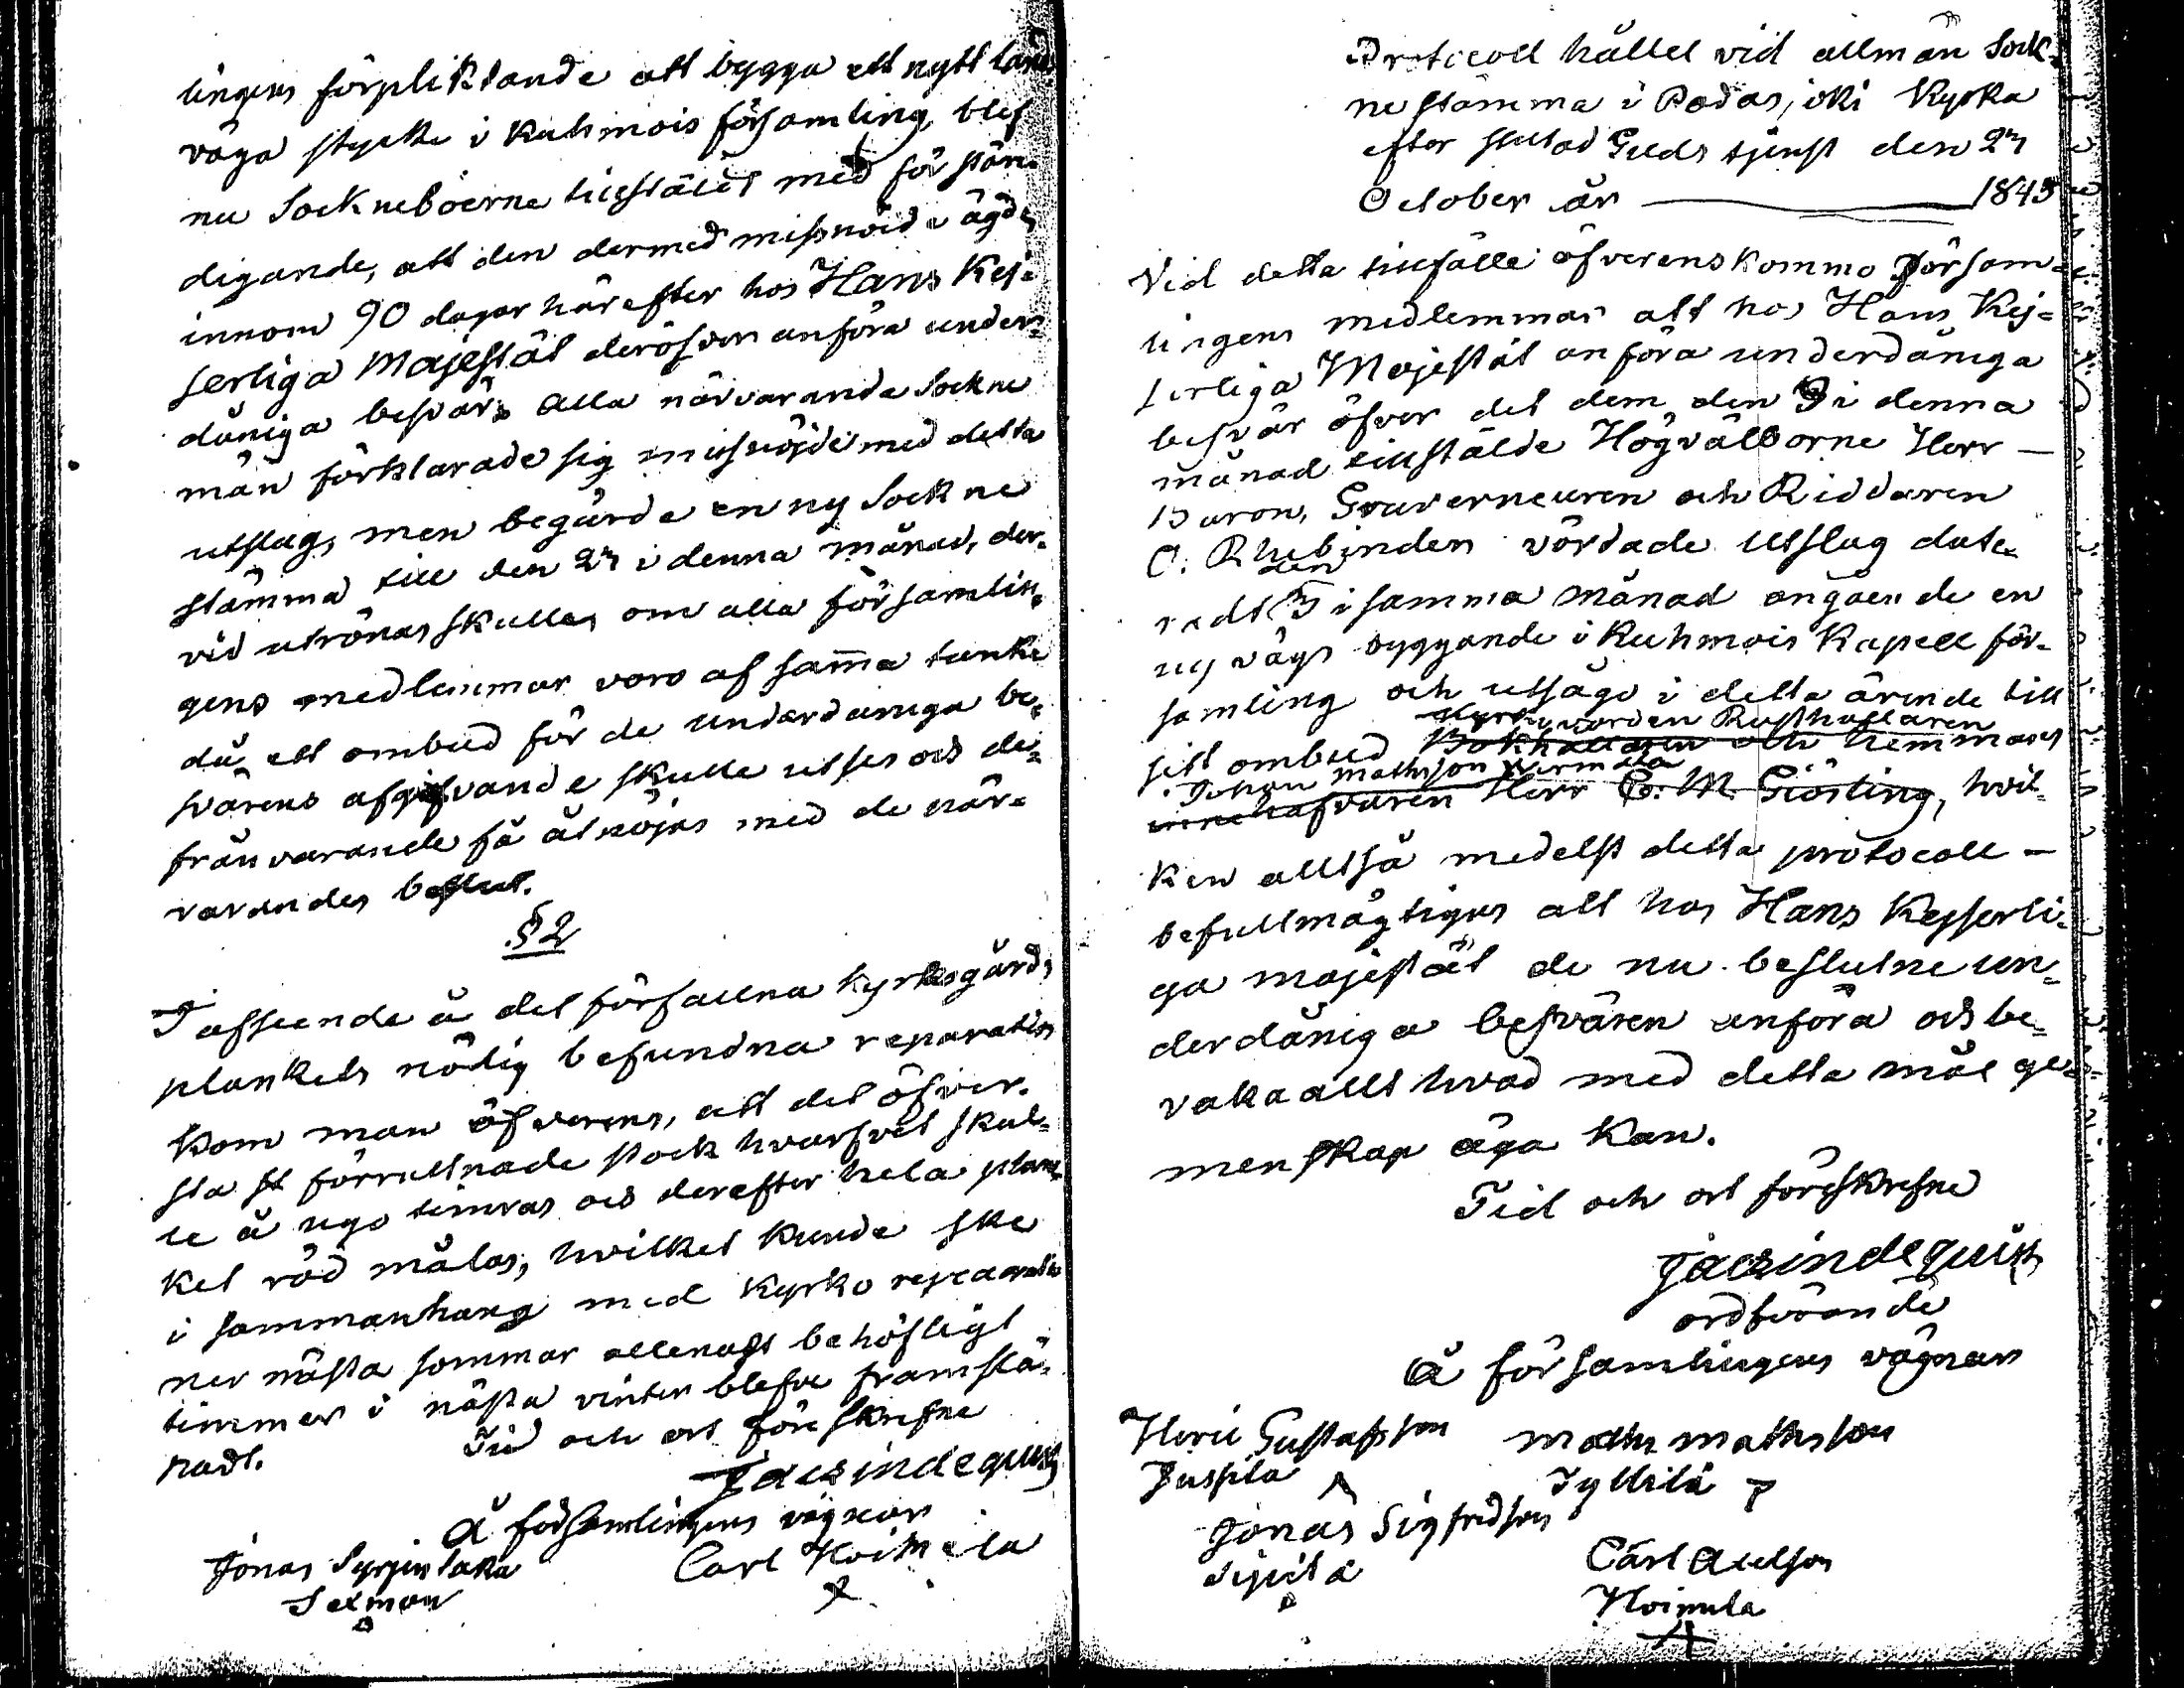 lingens förpliktande att bygga ett nytt lands
väga stycke i Kuhmois församling, blef
nu Sockneboerne tillstäldt med för stän-
digande, att den dermed missnöide ägde
innom 90 dagar härefter hos Hans Kej-
serliga Majestät deröfver anföra under-
dåniga besvär. Alla närvarande Sockne
män förklarade sig missnöjde med detta
utslag, men begärde en ny Sockne
stämma till den 27 i denna månad, der-
vid utrönas skulle, om alla församlin-
gens medlemmar voro af sam̄a tanke
då ett ombud för de underdåniga be-
svärens afgifvande skulle utses och de
frånvarande få åtnöjas med de när-
varandes beslut.
§ 2
I afseende å det förfallna kyrkogårds
plankets nödig befundna reparation
kom man öfverens, att det öfver-
sta förruttnade stock hvarfvet skul-
le å nyo timras och derefter hela plan-
ket röd målas, hvilket kunde ske
i sammanhang med kyrko reparatio
ner nästa sommar allenast behöfligt
timmer i nästa vinter blefve framslä-
padt. Tid och ort föreskrefne
Jac Lindequist
Å församlingens vägnar
Jonas Syrjentaka Carl Hoimela
Selman
Protocoll hållet vid allmän Sock-
nestämma i Padasjoki Kyrka
efter slutad Guds tjenst den 27
October år 1845
Vid detta tillfälle öfverenskommo Försam-
lingens medlemmar att hos Hans Kej-
serliga Majestät anföra underdåniga
besvär öfver det dem den 9 i denna
månad tillstälde Högvälborne Herr
Baron, Gouverneuren och Riddaren
O. Rhebinders vördade utslag date-
radt den 3 i samma månad angående en
ny vägs byggande i Kuhmois Kapell för-
samling och utsågo i detta ärende till
Kyrkovärden Rusthållaren
sitt ombud Bokhållaren och hemmans
Johan Mathsson Virmala
innehafvaren Herr C. M. Giösling, hvil-
ken alltså medelst detta protocoll
befullmägtigas att hos Hans Kejserli-
ga Majestät de nu beslutne un-
derdåniga besvären anföra och be-
vaka allt hvad med detta mål ge-
menskap äga kan.
Tid och ort föreskrefne
Jac Lindequist
ordförande
Å församlingens vägnar
Henric Gustafsson Maths Mathsson
Juspila Jyllilä
Jonas Sigfridson
Sipilä Carl Axelson
Hoimela